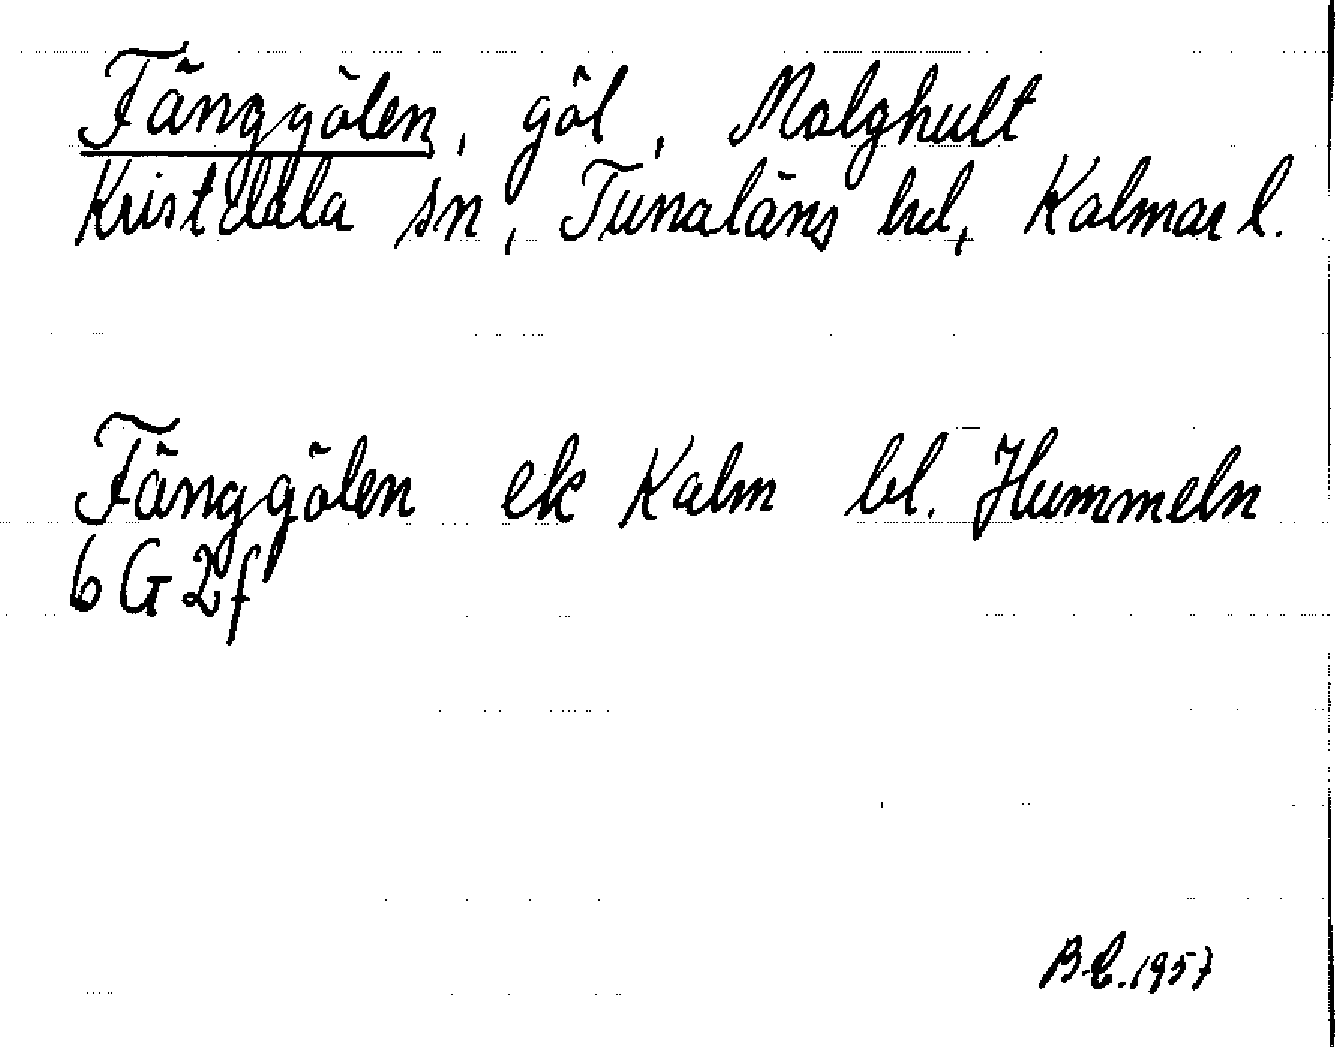 Fänggölen, göl, Malghult
Kristdala sn, Tunaläns hd, Kalmar l.
Fänggölen ek Kalm bl. Hummeln
6 G 2f
B-E.1957